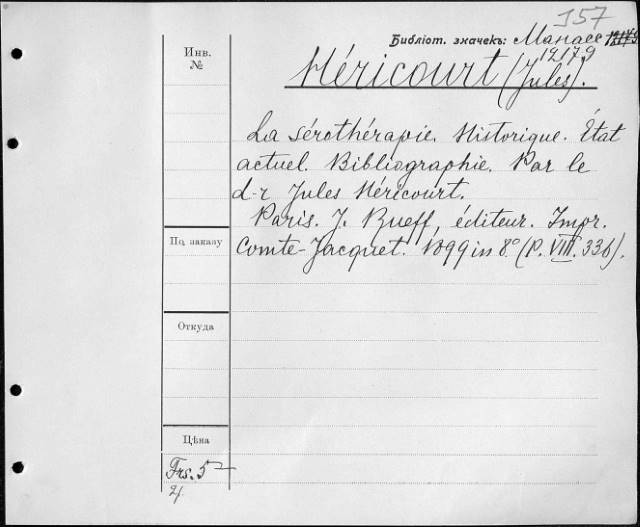 157
Библіот. значекъ: Манаес
12179
Инв.
№
Héricourt (Jules).
La sérothérapie. Historique. État
actuel. Bibliographie. Par le
d-r Jules Héricourt.
Paris. J. Rueff, éditeur. Impr.
Comte-Jacquet. 1899 in 8° (P. VIII. 336).
По заказу
Откуда
Цѣна
Frs. 5-